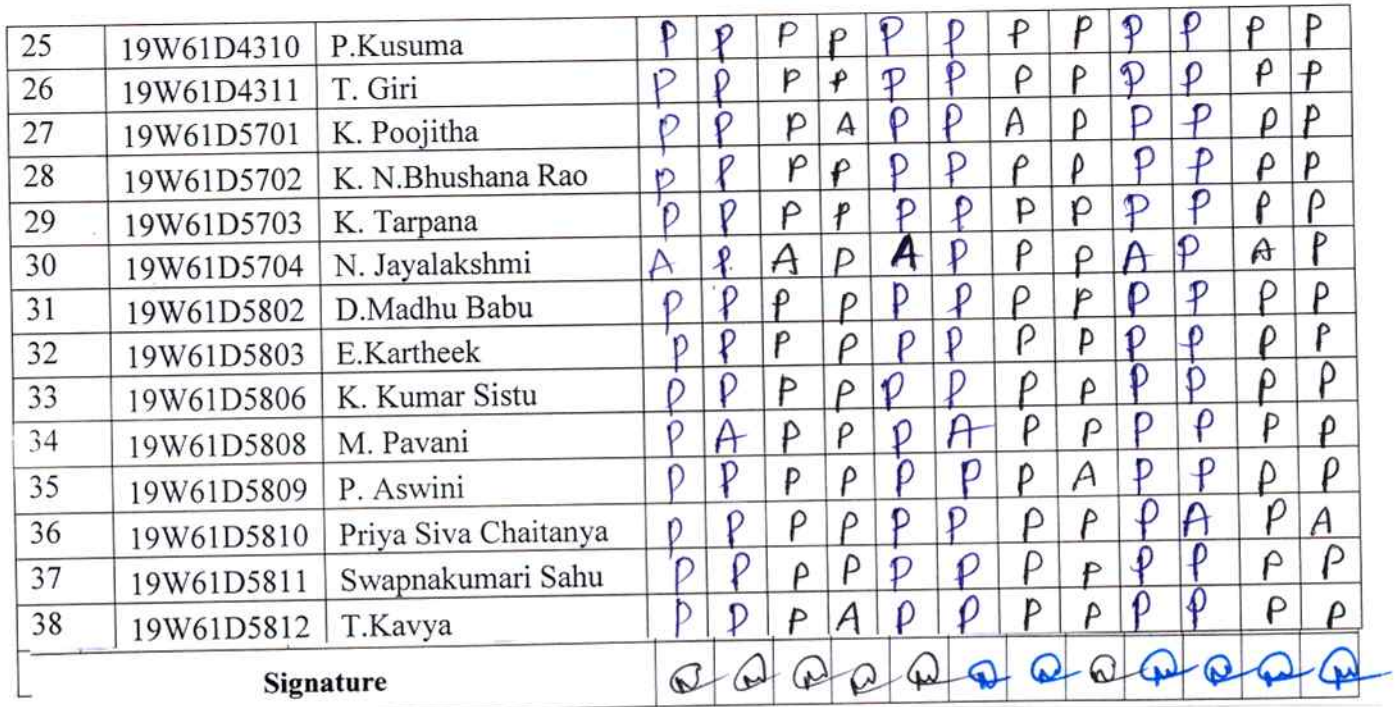 25 19W61D4310 P.Kusuma P P P P P P P P P P P P
26 19W61D4311 T. Giri P P P P P P P P P P P P
27 19W61D5701 K. Poojitha P P P A P P A P P P P P
28 19W61D5702 K. N.Bhushana Rao P P P P P P P P P P P P
29 19W61D5703 K. Tarpana P P P P P P P P P P P P
30 19W61D5704 N. Jayalakshmi A P. A P A P P P A P A P
31 19W61D5802 D.Madhu Babu P P P P P P P P P P P P
32 19W61D5803 E.Kartheek P P P P P P P P P P P P
33 19W61D5806 K. Kumar Sistu P P P P P P P P P P P P
34 19W61D5808 M. Pavani P A P P P A P P P P P P
35 19W61D5809 P. Aswini P P P P P P P A P P P P
36 19W61D5810 Priya Siva Chaitanya P P P P P P P P P A P A
37 19W61D5811 Swapnakumari Sahu P P P P P P P P P P P P
38 19W61D5812 T.Kavya P P P A P P P P P P P P
Signature